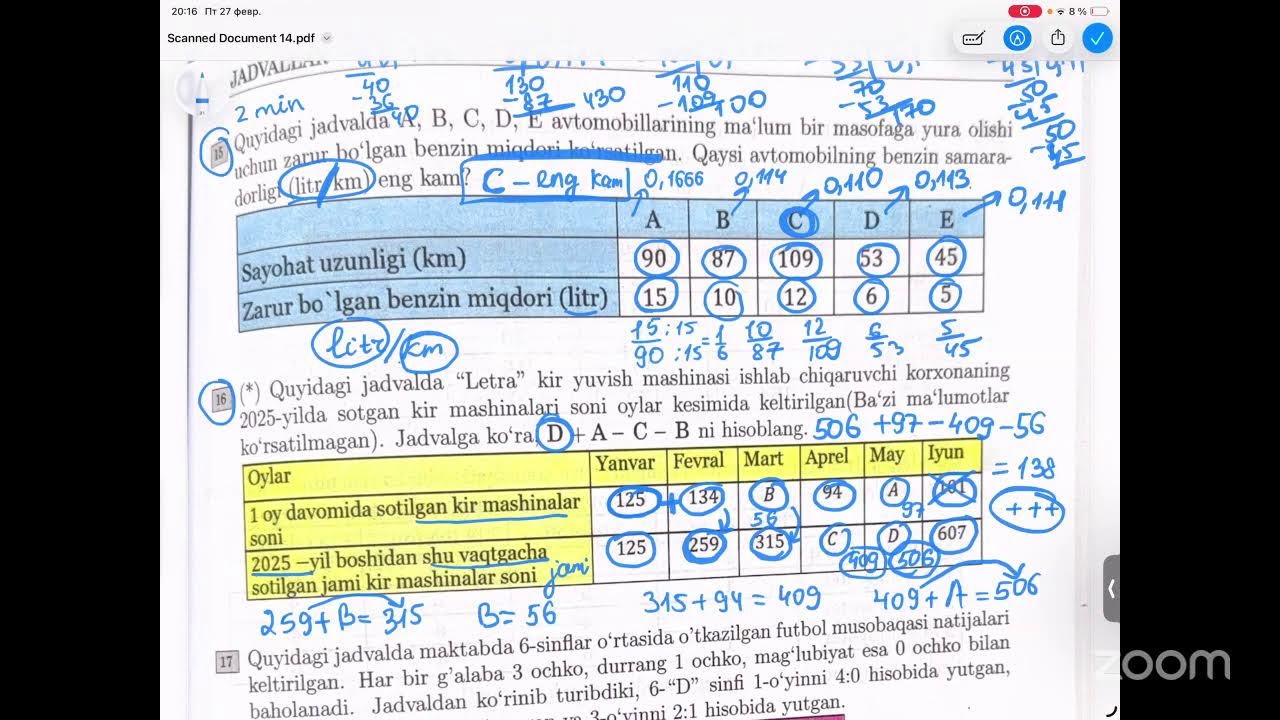 20:16 Пт 27 февр.
8 %
Scanned Document 14.pdf
JADVALLAR
40
130
110
70
50
2 min
- 36
- 87
430
- 109
100
- 53
170
- 45
40
50
- 45
15 Quyidagi jadvalda A, B, C, D, E avtomobillarining ma‘lum bir masofaga yura olishi
uchun zarur bo‘lgan benzin miqdori ko‘rsatilgan. Qaysi avtomobilning benzin samara-
dorligi (litr/km) eng kam? C – eng kam
0,1666 0,114 0,110 0,113 0,111
A B C D E
Sayohat uzunligi (km) 90 87 109 53 45
Zarur bo`lgan benzin miqdori (litr) 15 10 12 6 5
litr/km
15:15/90:15 = 1/6 10/87 12/109 6/53 5/45
16 (*) Quyidagi jadvalda “Letra” kir yuvish mashinasi ishlab chiqaruvchi korxonaning
2025-yilda sotgan kir mashinalari soni oylar kesimida keltirilgan(Ba‘zi ma‘lumotlar
ko‘rsatilmagan). Jadvalga ko‘ra, D + A – C – B ni hisoblang. 506 + 97 – 409 – 56
= 138
+++
Oylar Yanvar Fevral Mart Aprel May Iyun
1 oy davomida sotilgan kir mashinalar
soni 125 + 134 B 94 A 101
56 97
2025 –yil boshidan shu vaqtgacha
sotilgan jami kir mashinalar soni 125 259 315 C D 607
jami 409 506
259 + B = 315 B = 56 315 + 94 = 409 409 + A = 506
17 Quyidagi jadvalda maktabda 6-sinflar o‘rtasida o’tkazilgan futbol musobaqasi natijalari
keltirilgan. Har bir g’alaba 3 ochko, durrang 1 ochko, mag‘lubiyat esa 0 ochko bilan
baholanadi. Jadvaldan ko‘rinib turibdiki, 6-“D” sinfi 1-o‘yinni 4:0 hisobida yutgan,
3-o‘yinni 2:1 hisobida yutgan.
zoom